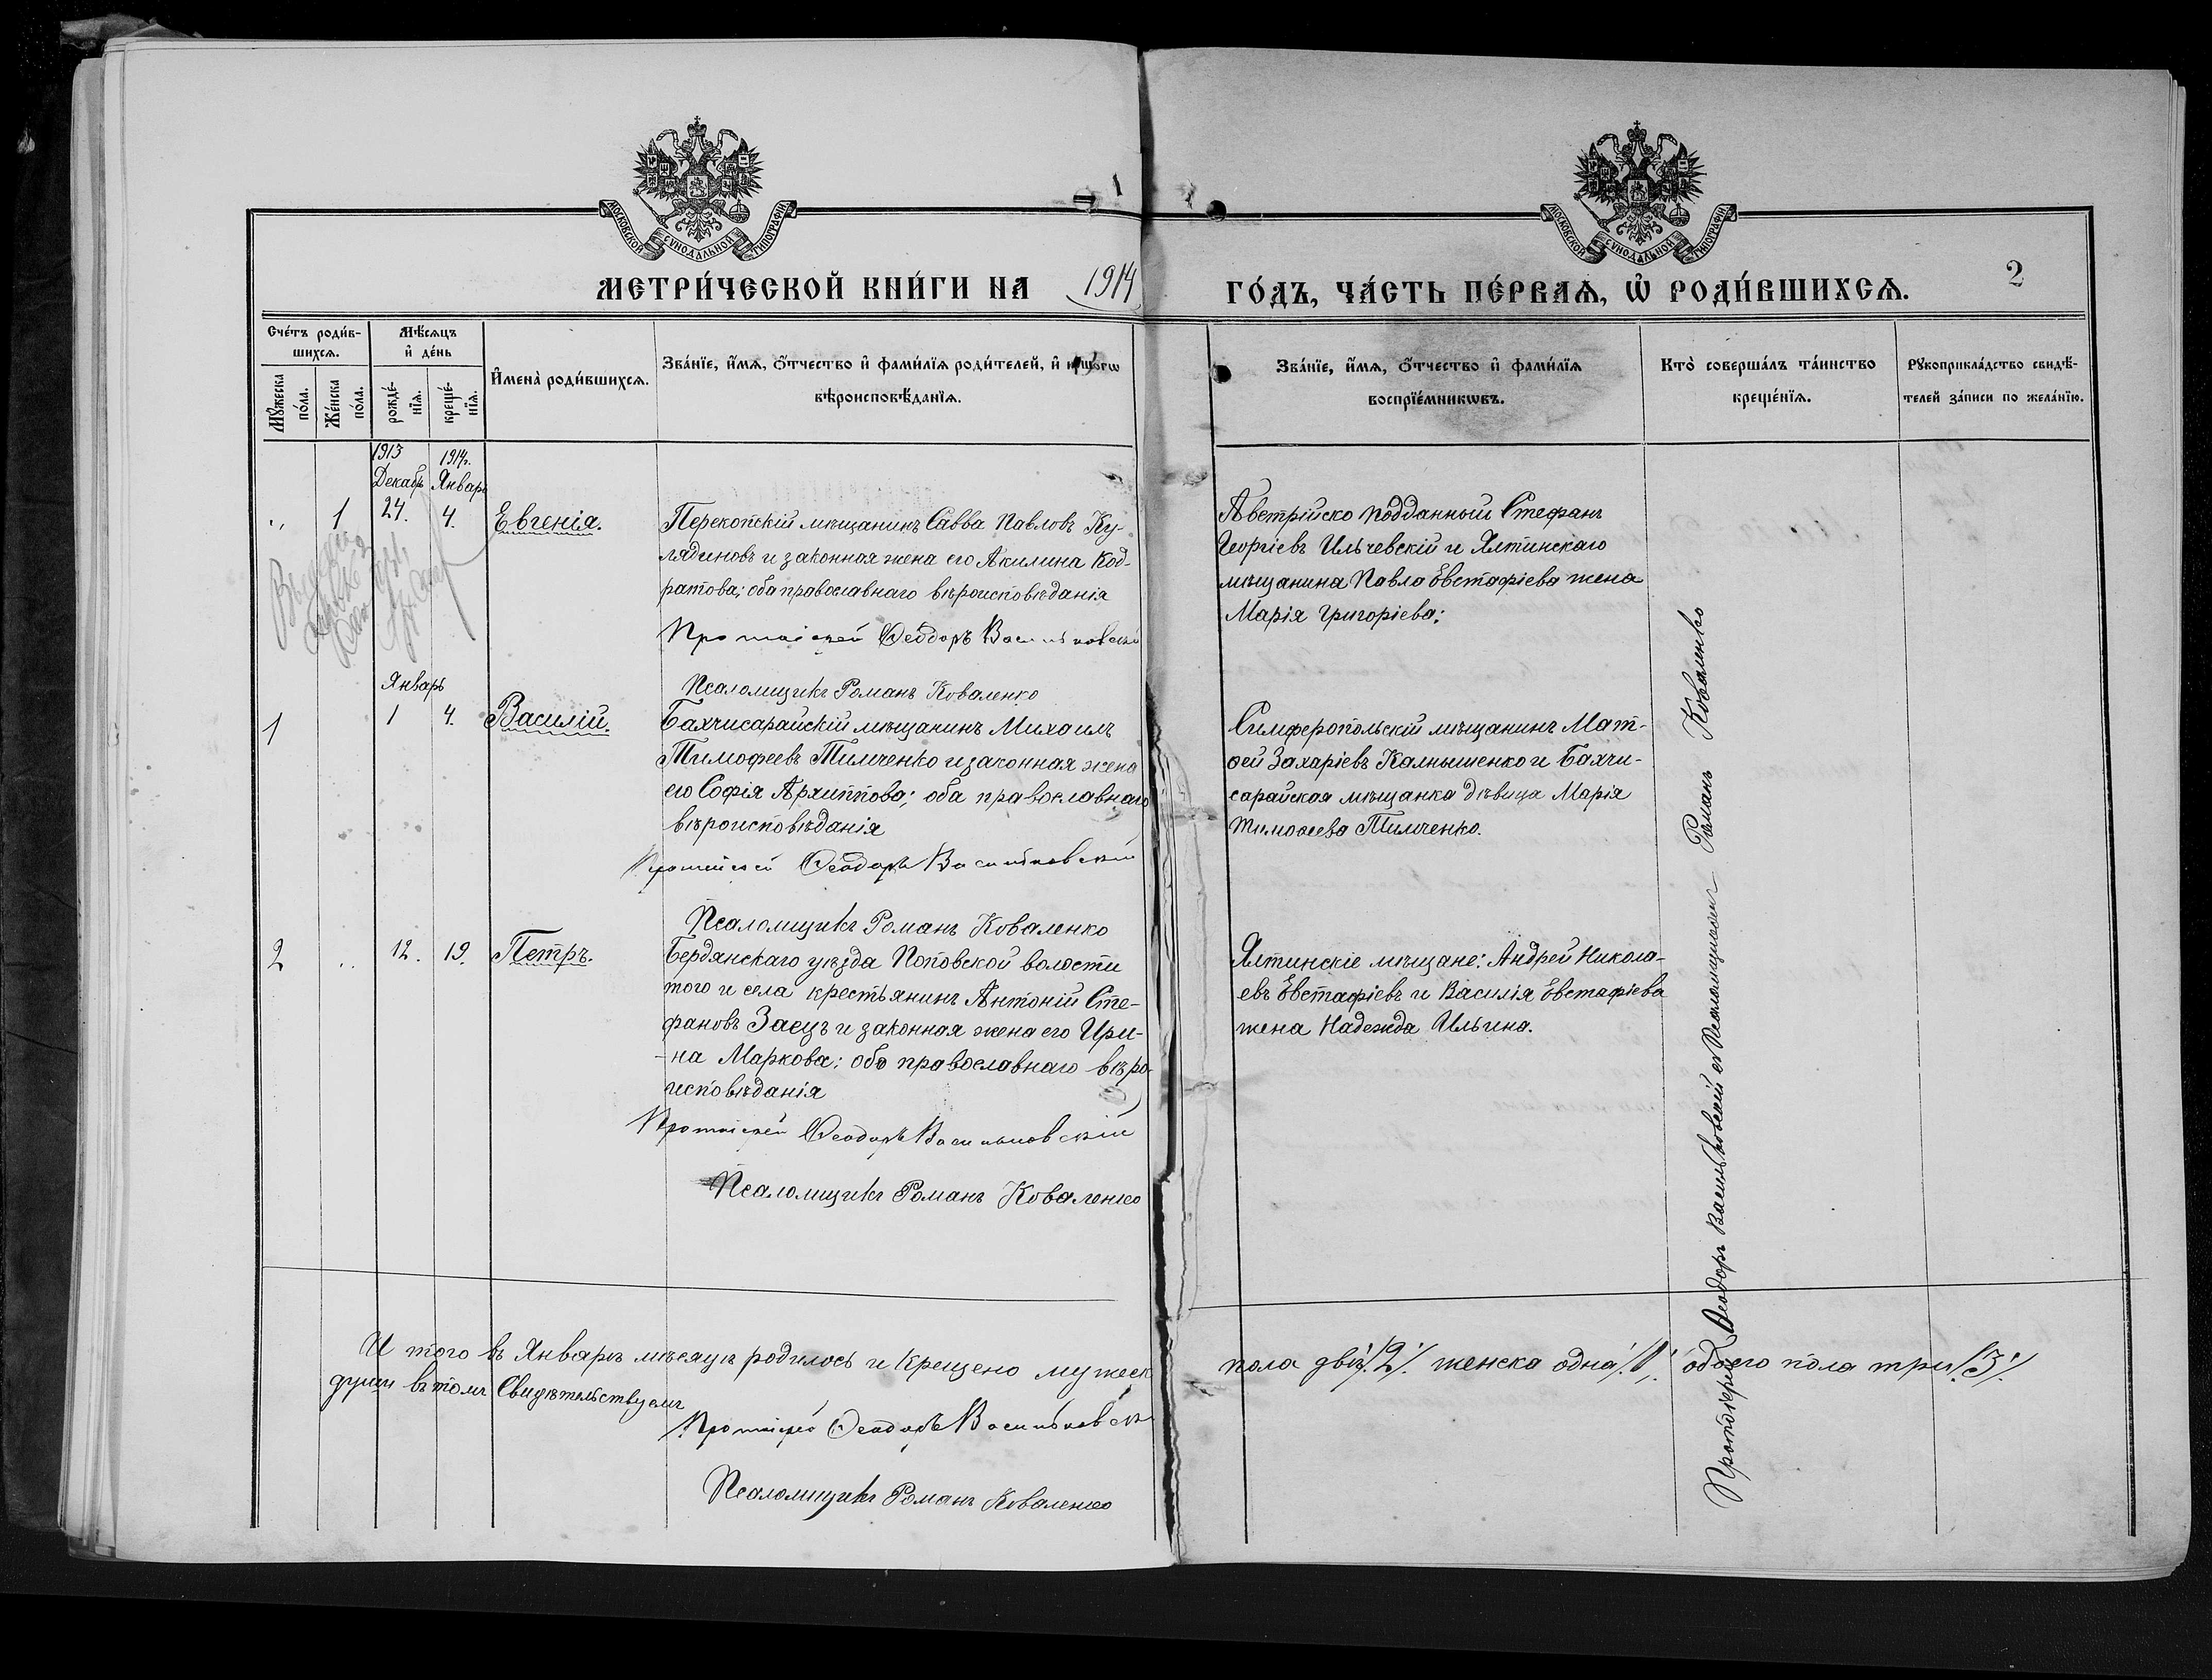 МОСКОВСКОЙ СУНОДАЛЬНОЙ ТИПОГРАФІИ
МОСКОВСКОЙ СУНОДАЛЬНОЙ ТИПОГРАФІИ
МЕТРИ́ЧЕСКОЙ КНИ́ГИ НА 1914
ГО́ДЪ, ЧА́СТЬ ПЕ́РВАѦ, Ѡ҆ РОДИ́ВШИХСѦ.
2
Сче́тъ роди́в-
шихсѧ.
Мѣ́сѧцъ
и҆ де́нь
Мꙋ́жеска
по́ла.
Же́нска
по́ла.
рожде́-
нїѧ.
креще́-
нїѧ.
И҆мена̀ роди́вшихсѧ.
Зва́нїе, и҆́мѧ, ѻ҆́тчество и҆ фами́лїѧ роди́телей, и҆
вѣроисповѣ́данїѧ.
Зва́нїе, и҆́мѧ, ѻ҆́тчество и҆ фами́лїѧ
воспрїе́мникѡвъ.
Кто̀ соверша́лъ та́инство
креще́нїѧ.
Рꙋкоприкла́дство свидѣ́-
телей за́писи по жела́нїю.
1913 1914г.
Декабрь Январь
" 1 24. 4. Евгенія.
Перекопскій мѣщанинъ Савва Павловъ Ку-
лядиновъ и законная жена его Акилина Код-
ратова; оба православнаго вѣроисповѣданія
Протоіерей Ѳеодоръ Васильковскій
Псаломщикъ Романъ Коваленко
Австрійско подданный Стефанъ
Георгіевъ Ильчевскій и Ялтинскаго
мѣщанина Павла Евстафіева жена
Марія Григоріева;
Январь
1 1 4. Василій.
Бахчисарайскій мѣщанинъ Михаилъ
Тимофеевъ Тимченко и законная жена
его Софія Архиппова; оба православнаго
вѣроисповѣданія
Протоіерей Ѳеодоръ Васильковскій
Псаломщикъ Романъ Коваленко
Симферопольскій мѣщанинъ Мат-
ѳей Захаріевъ Калнышенко и Бахчи-
сарайская мѣщанка дѣвица Марія
Тимоѳеева Тимченко.
2 " 12. 19. Петръ.
Бердянскаго уѣзда Поповской волости
того и села крестьянинъ Антоній Сте-
фановъ Заецъ и законная жена его Ири-
-на Маркова; оба православнаго вѣро-
исповѣданія
Протоіерей Ѳеодоръ Васильковскій
Псаломщикъ Романъ Коваленко
Ялтинскіе мѣщане: Андрей Никола-
евъ Евстафіевъ и Василія Евстафіева
жена Надежда Ильина.
Протоіерей Ѳеодоръ Васильковскій съ Псаломщикомъ Романъ Коваленко
И того въ Январѣ мѣсяцѣ родилось и крещено мужеск
пола двѣ /2/. женска одна /1/. обоего пола три /3/.
души въ томъ Свидѣтельствуемъ
Протоіерей Ѳеодоръ Васильковскій
Псаломщикъ Романъ Коваленко